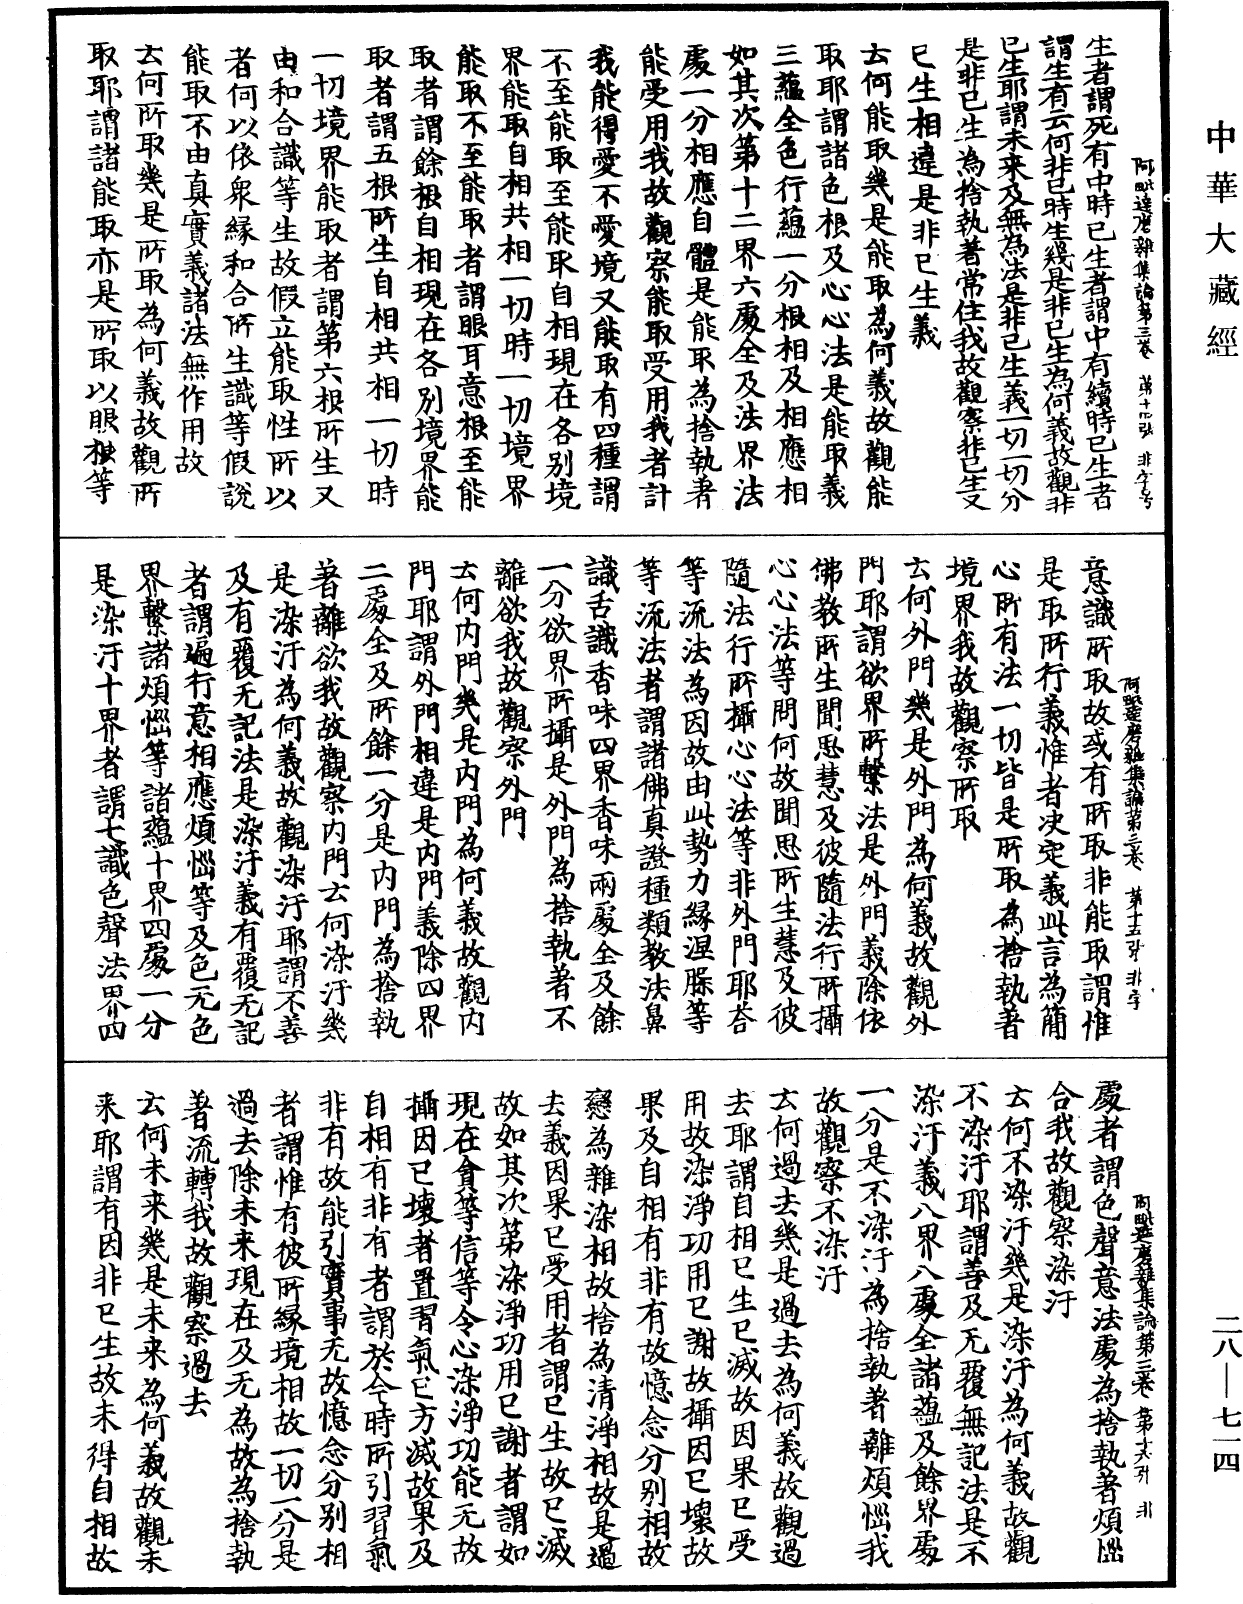 中華大藏經
阿毗達磨雜集論第三卷　第十四張　非字号
生者謂死有中時已生者謂中有續時已生者
謂生有云何非已時生幾是非已生為何義故觀非
已生耶謂未来及無為法是非已生義一切一切分
是非已生為捨執著常住我故觀察非已生又
已生相違是非已生義
云何能取幾是能取為何義故觀能
取耶謂諸色根及心心法是能取義
三蘊全色行蘊一分根相及相應相
如其次第十二界六處全及法界法
處一分相應自體是能取為捨執著
能受用我故觀察能取受用我者計
我能得愛不愛境又能取有四種謂
不至能取至能取自相現在各別境
界能取自相共相一切時一切境界
能取不至能取者謂眼耳意根至能
取者謂餘根自相現在各別境界能
取者謂五根所生自相共相一切時
一切境界能取者謂第六根所生又
由和合識等生故假立能取性所以
者何以依衆緣和合所生識等假說
能取不由真實義諸法無作用故
云何所取幾是所取為何義故觀所
取耶謂諸能取亦是所取以眼根等
阿毗達磨雜集論第三卷　第十五張　非字
意識所取故或有所取非能取謂惟
是取所行義惟者决定義此言為簡
心所有法一切皆是所取為捨執著
境界我故觀察所取
云何外門幾是外門為何義故觀外
門耶謂欲界所繫法是外門義除依
佛教所生聞思慧及彼隨法行所攝
心心法等問何故聞思所生慧及彼
隨法行所攝心心法等非外門耶荅
等流法為因故由此勢力緣涅槃等
等流法者謂諸佛真證種類教法鼻
識舌識香味四界香味兩處全及餘
一分欲界所攝是外門為捨執著不
離欲我故觀察外門
云何内門幾是内門為何義故觀内
門耶謂外門相違是内門義除四界
二處全及所餘一分是内門為捨執
著離欲我故觀察内門云何染汙幾
是染汙為何義故觀染汙耶謂不善
及有覆无記法是染汙義有覆无記
者謂遍行意相應煩惱等及色无色
界繫諸煩惱等諸蘊十界四處一分
是染汙十界者謂七識色聲法界四
阿毗達磨雜集論第三卷　第十六張　非
處者謂色聲意法處為捨執著煩惱
合我故觀察染汙
云何不染汙幾是染汙為何義故觀
不染汙耶謂善及无覆無記法是不
染汙義八界八處全諸蘊及餘界處
一分是不染汙為捨執著離煩惱我
故觀察不染汙
云何過去幾是過去為何義故觀過
去耶謂自相已生已滅故因果已受
用故染淨功用已謝故攝因已壞故
果及自相有非有故憶念分别相故
戀為雜染相故捨為清淨相故是過
去義因果已受用者謂已生故已滅
故如其次第染淨功用已謝者謂如
現在貪等信等令心染淨功能无故
攝因已壞者置習氣已方滅故果及
自相有非有者謂於今時所引習氣
非有故能引實事无故憶念分别相
者謂惟有彼所緣境相故一切一分是
過去除未来現在及无為故為捨執
著流轉我故觀察過去
云何未来幾是未来為何義故觀未
来耶謂有因非已生故未得自相故
二八—七一四